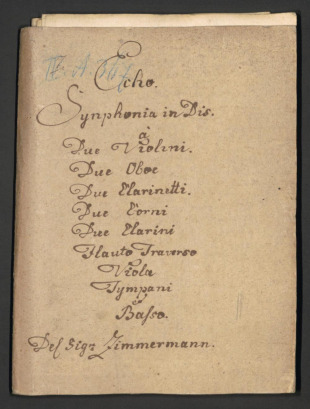 Echo.
Synphonia in Dis.
à
Due Violini.
Due Oboe
Due Clarinetti.
Due Corni
Due Clarini
Flauto Traverso
Viola
Tympani
e
Basso.
Del Sigr Zimmermann.